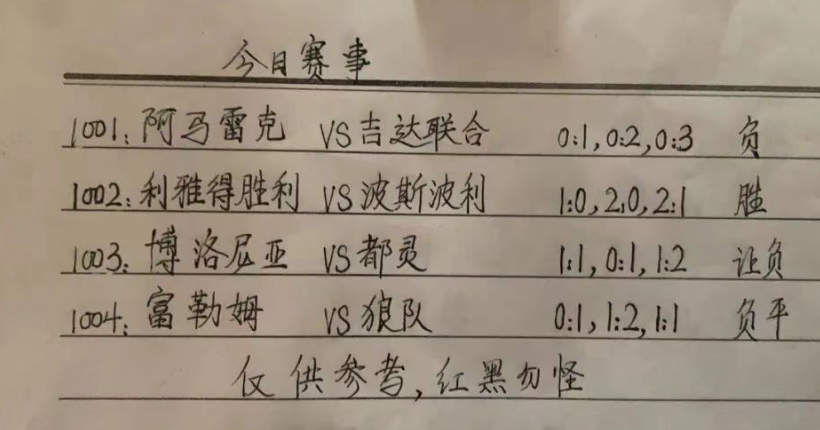 今日赛事
1001:阿马雷克 VS吉达联合 0:1,0:2,0:3 负
1002:利雅得胜利 VS波斯波利 1:0,2:0,2:1 胜
1003:博洛尼亚 VS都灵 1:1,0:1,1:2 让负
1004:富勒姆 VS狼队 0:1,1:2,1:1 负平
仅供参考,红黑勿怪